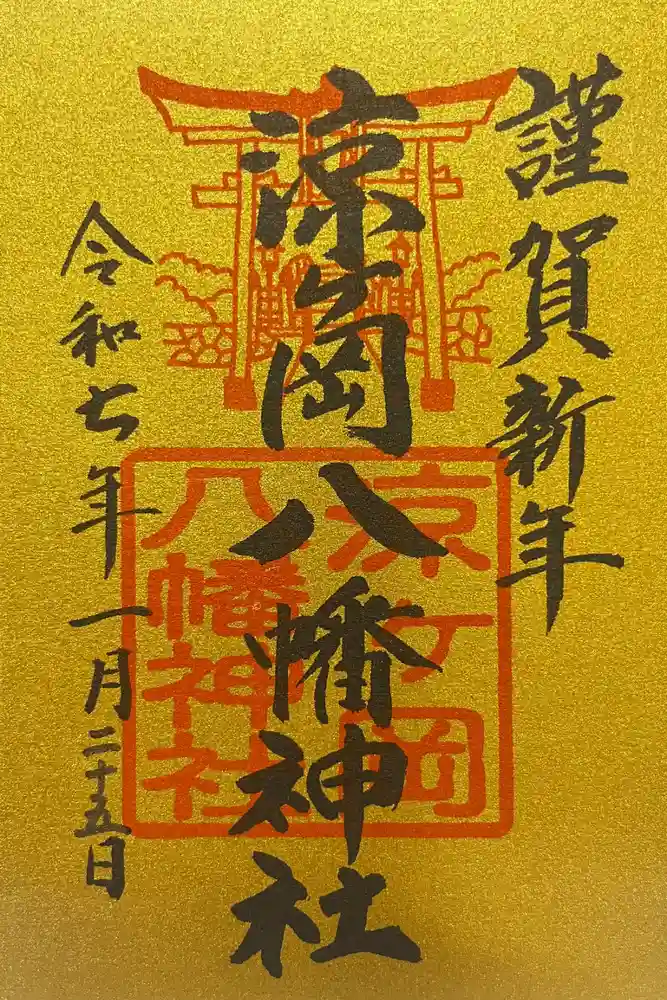 謹賀新年
涼岡八幡神社
涼ヶ岡
八幡神社
令和七年一月二十五日